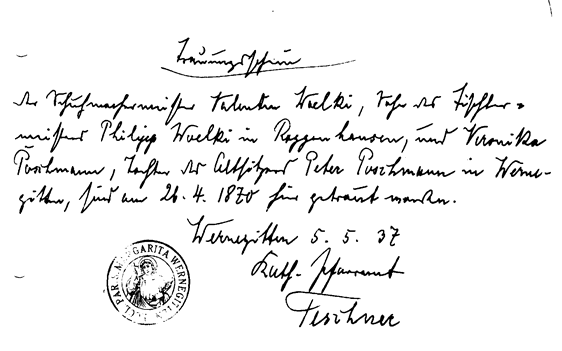 Trauungsschein
Der Schuhmachermeister Valentin Woelki, Sohn des Tischler-
meisters Philipp Woelki in Roggenhausen, und Veronika
Poschmann, Tochter des Altsitzers Peter Poschmann in Werne-
gitten, sind am 26. 4. 1870 hier getraut worden.
Wernegitten 5. 5. 37
Kath. Pfarramt
Teschner
PAR. S. MARGARITA WERNEGITTEN